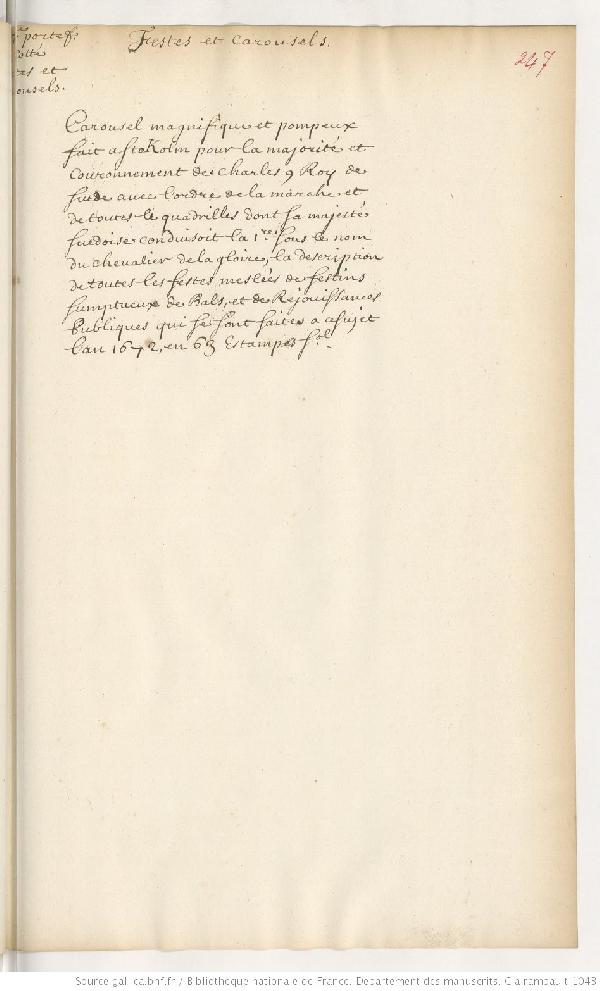 portef.
Festes et Carousels.
247
cotté
tes et
ousels.
Carousel magnifique et pompeux
fait a stoKolm pour la majorité et
couronnement de Charles 9 Roy de
suede avec l'ordre de la marche et
de toutes le quadrilles dont sa majesté
suedoise conduisoit la 1re sous le nom
du chevalier de la gloire, la description
de toutes les festes meslées de festins
sumptueux de Bals, et de Rejouissances
Publiques qui se sont faites a ce sujet
l'an 1672, en 63 Estampes fol.
Source gallica.bnf.fr / Bibliothèque nationale de France. Département des manuscrits. Clairambault 1048